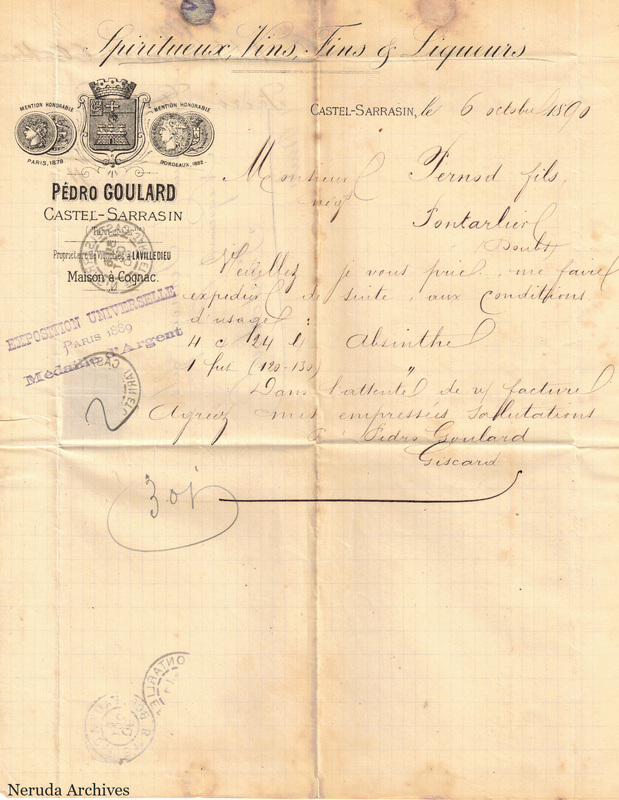 Spiritueux, Vins, Fins & Liqueurs
MENTION HONORABLE
PARIS, 1878
MENTION HONORABLE
BORDEAUX, 1882
PÉDRO GOULARD
CASTEL-SARRASIN
(Tarn & Garonne)
Propriétaire de Vignobles à LAVILLEDIEU
Maison à Cognac.
EXPOSITION UNIVERSELLE
Paris 1889
Médaille d'Argent
CASTEL-SARRASIN, le 6 octobre 1890
Monsieur Pernod fils,
négt
Pontarlier
Doubs
Veuillez je vous prie, me faire
expédier de suite, aux conditions
d'usage :
4 c 24 l Absinthe
1 fut (120-130) "
Dans l'attente de v/ facture
Agréez mes empressées salutations
P. Pedro Goulard
Giscard
2
30j
Neruda Archives